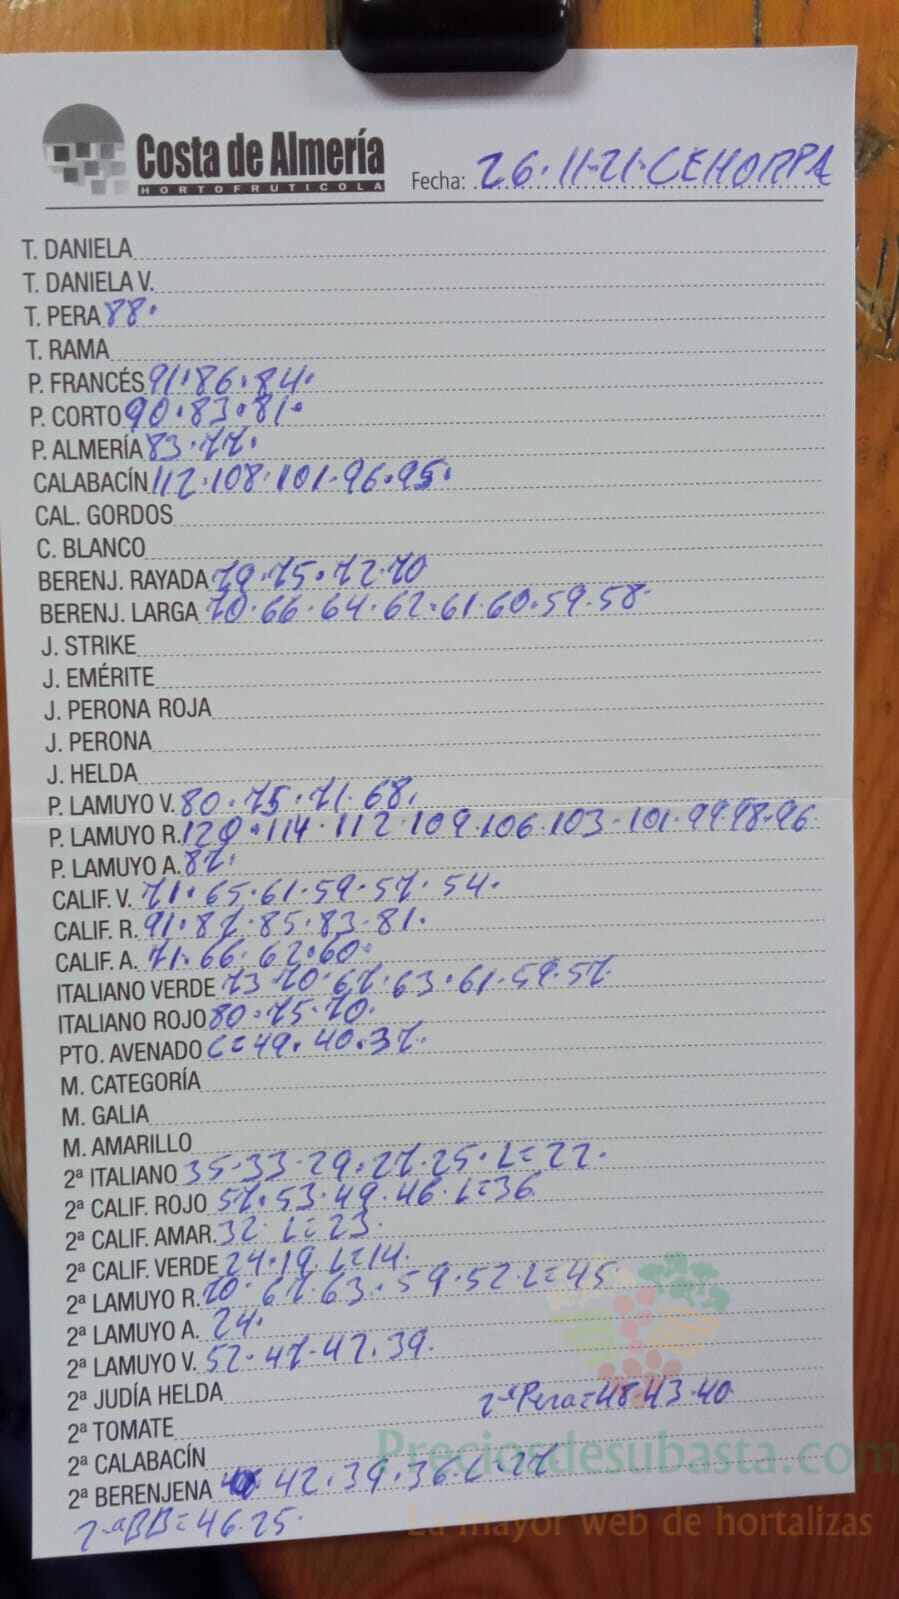 Costa de Almería
HORTOFRUTICOLA
Fecha: 26.11.21.CEHORPA
T. DANIELA
T. DANIELA V.
T. PERA 88.
T. RAMA
P. FRANCÉS 91.86.84.
P. CORTO 90.83.81.
P. ALMERÍA 83.77.
CALABACÍN 112.108.101.96.95.
CAL. GORDOS
C. BLANCO
BERENJ. RAYADA 79.75.72.70
BERENJ. LARGA 70.66.64.62.61.60.59.58.
J. STRIKE
J. EMÉRITE
J. PERONA ROJA
J. PERONA
J. HELDA
P. LAMUYO V. 80.75.71.68.
P. LAMUYO R. 120.114.112.109.106.103.101.99.98.96.
P. LAMUYO A. 87.
CALIF. V. 71.65.61.59.57.54.
CALIF. R. 91.87.85.83.81.
CALIF. A. 71.66.62.60.
ITALIANO VERDE 73.70.67.63.61.59.57
ITALIANO ROJO 80.75.70.
PTO. AVENADO C=49.40.37.
M. CATEGORÍA
M. GALIA
M. AMARILLO
2ª ITALIANO 35.33.29.27.25.L=22.
2ª CALIF. ROJO 57.53.49.46.L=36
2ª CALIF. AMAR. 32 L=23.
2ª CALIF. VERDE 24.19.L=14.
2ª LAMUYO R. 70.67.63.59.52.L=45
2ª LAMUYO A. 24.
2ª LAMUYO V. 52.47.42.39.
2ª JUDÍA HELDA
2ª Pera=48.43.40
2ª TOMATE
2ª CALABACÍN
Preciosdesubasta.com
2ª BERENJENA 42.39.36.L=27
2ªBB=46.25.
La mayor web de hortalizas